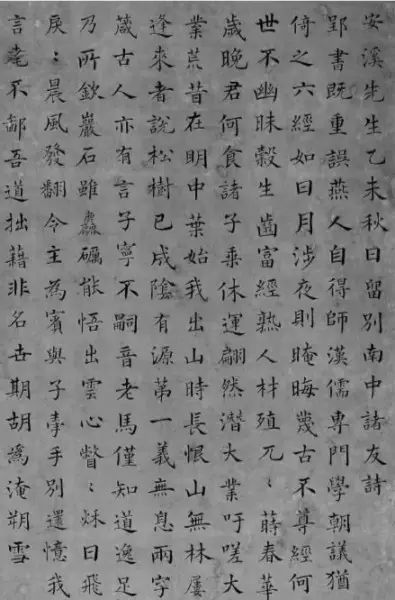 安溪先生乙未秋日留別南中諸友詩
郢書既重誤燕人自得師漢儒專門學朝議猶
倚之六經如日月涉夜則晻晦幾古不尊經何
世不幽昧穀生齒富經熟人材殖兀〻蒔春華
歲晚君何食諸子乘休運翩然潛大業吁嗟大
業荒昔在明中葉始我出山時長恨山無林屢
逢來者說松樹已成隂有源第一義無息兩字
葴古人亦有言子寧不嗣音老馬僅知道逸足
乃所欽巖石雖麤礪能悟出雲心瞥〻秋日飛
戾〻晨風發翻令主為賓與子摻手別還憶我
言耄不鄙吾道拙藉非名世期胡爲淹朔雪